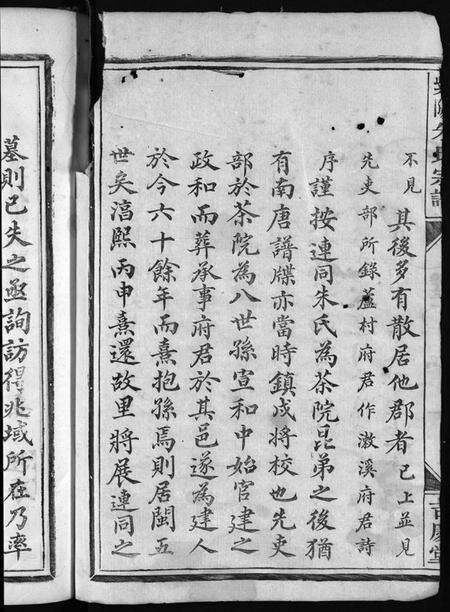 不見
其後多有散居他郡者已上並見
先吏部所錄蘆村府君作漵溪府君詩
序謹按連同朱氏為茶院昆弟之後猶
有南唐譜牒亦當時鎮戍將校也先吏
部於茶院為八世孫宣和中始官建之
政和而葬承事府君於其邑遂為建人
於今六十餘年而熹抱孫焉則居閩五
世矣淳熙丙申熹還故里將展連同之
墓則已失之亟詢訪得兆域所在乃率